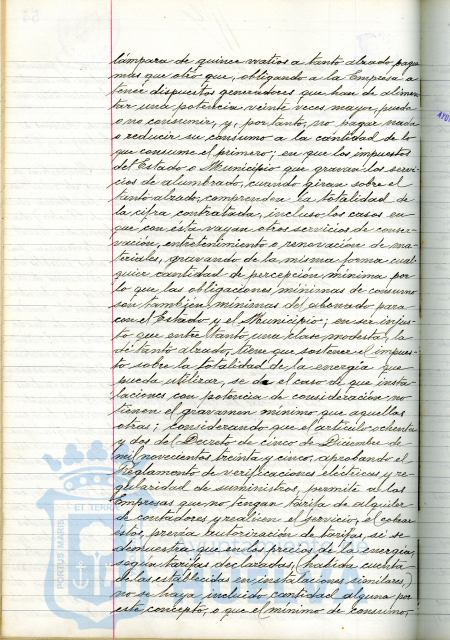 lámpara de quince watios a tanto alzado pague
mas que otro que, obligando a la Empresa a
tener dispuestos generadores que han de alimen-
tar una potencia veinte veces mayor, pueda
o no consumir, y, por tanto, no pague nada
o reducir su consumo a la cantidad de lo
que consume el primero; en que los impuestos
del Estado o Municipio que gravan los servi-
cios de alumbrado, cuando giran sobre el
tanto alzado, comprenden la totalidad de
la cifra contratada, incluso los casos en
que con ésta vayan otros servicios de conser-
vación, entretenimiento o renovación de ma-
teriales, gravando de la misma forma cual-
quier cantidad de percepción mínima por
lo que las obligaciones mínimas de consumo
son tambien mínimas del abonado para
con el Estado y el Municipio; en ser injus-
to que entre tanto una clase modesta, la
de tanto alzado, tiene que sostener el impues-
to sobre la totalidad de la energia que
pueda utilizar, se de el caso de que insta-
laciones con potencia de consideración no
tienen el gravamen mínimo que aquellas
otras; considerando que el artículo ochenta
y dos del Decreto de cinco de Diciembre de
mil novecientos treinta y cinco, aprobando el
Reglamento de verificaciones eléctricas y re-
gularidad de suministros, permite a las
Empresas que no tengan tarifa de alquiler
de contadores y realicen el servicio, el cobrar
éste, previa autorización de tarifas, si se
demuestra que en los precios de la energia,
segun tarifas declaradas, (habida cuenta
de las establecidas en instalaciones similares)
no se haya incluido cantidad alguna por
este concepto, o que el mínimo de consumo,
ET TERR
PORTUS MARIS
Ayuntamiento de